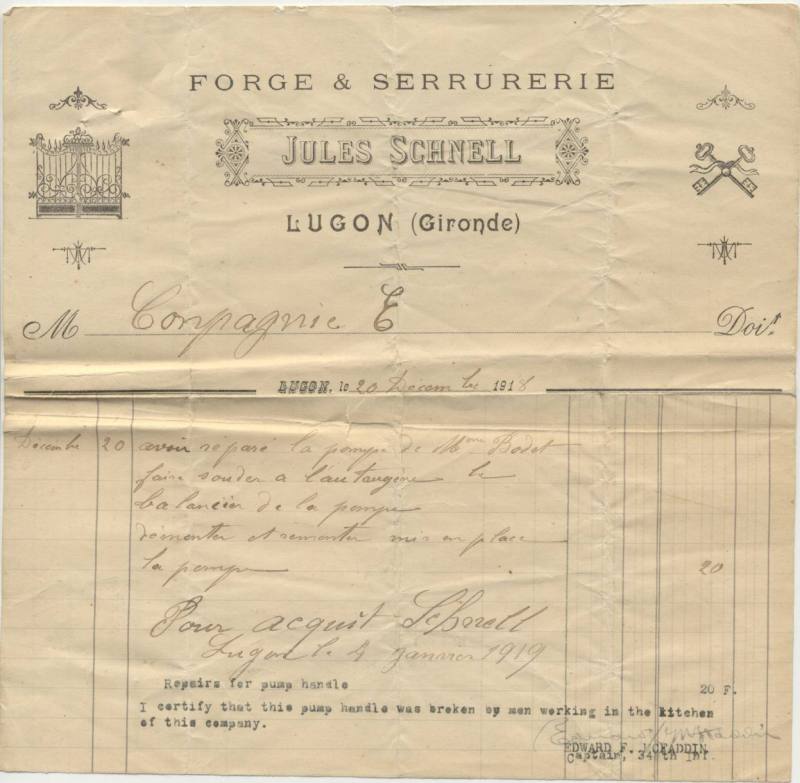 FORGE & SERRURERIE
JULES SCHNELL
LUGON (Gironde)
M Compagnie E Doit
LUGON, le 20 Décembre 1918
Décembre 20 avoir réparé la pompe de Mme Bodet
faire souder a l'autaugene le
balancier de la pompe
démonter et remonter mis en place
la pompe 20
Pour acquit Schnell
Lugon le 4 Janvier 1919
Repairs for pump handle 20 F.
I certify that this pump handle was broken by men working in the kitchen
of this company.
Edward F McFaddin
EDWARD F. MCFADDIN
Captain, 34th Inf.